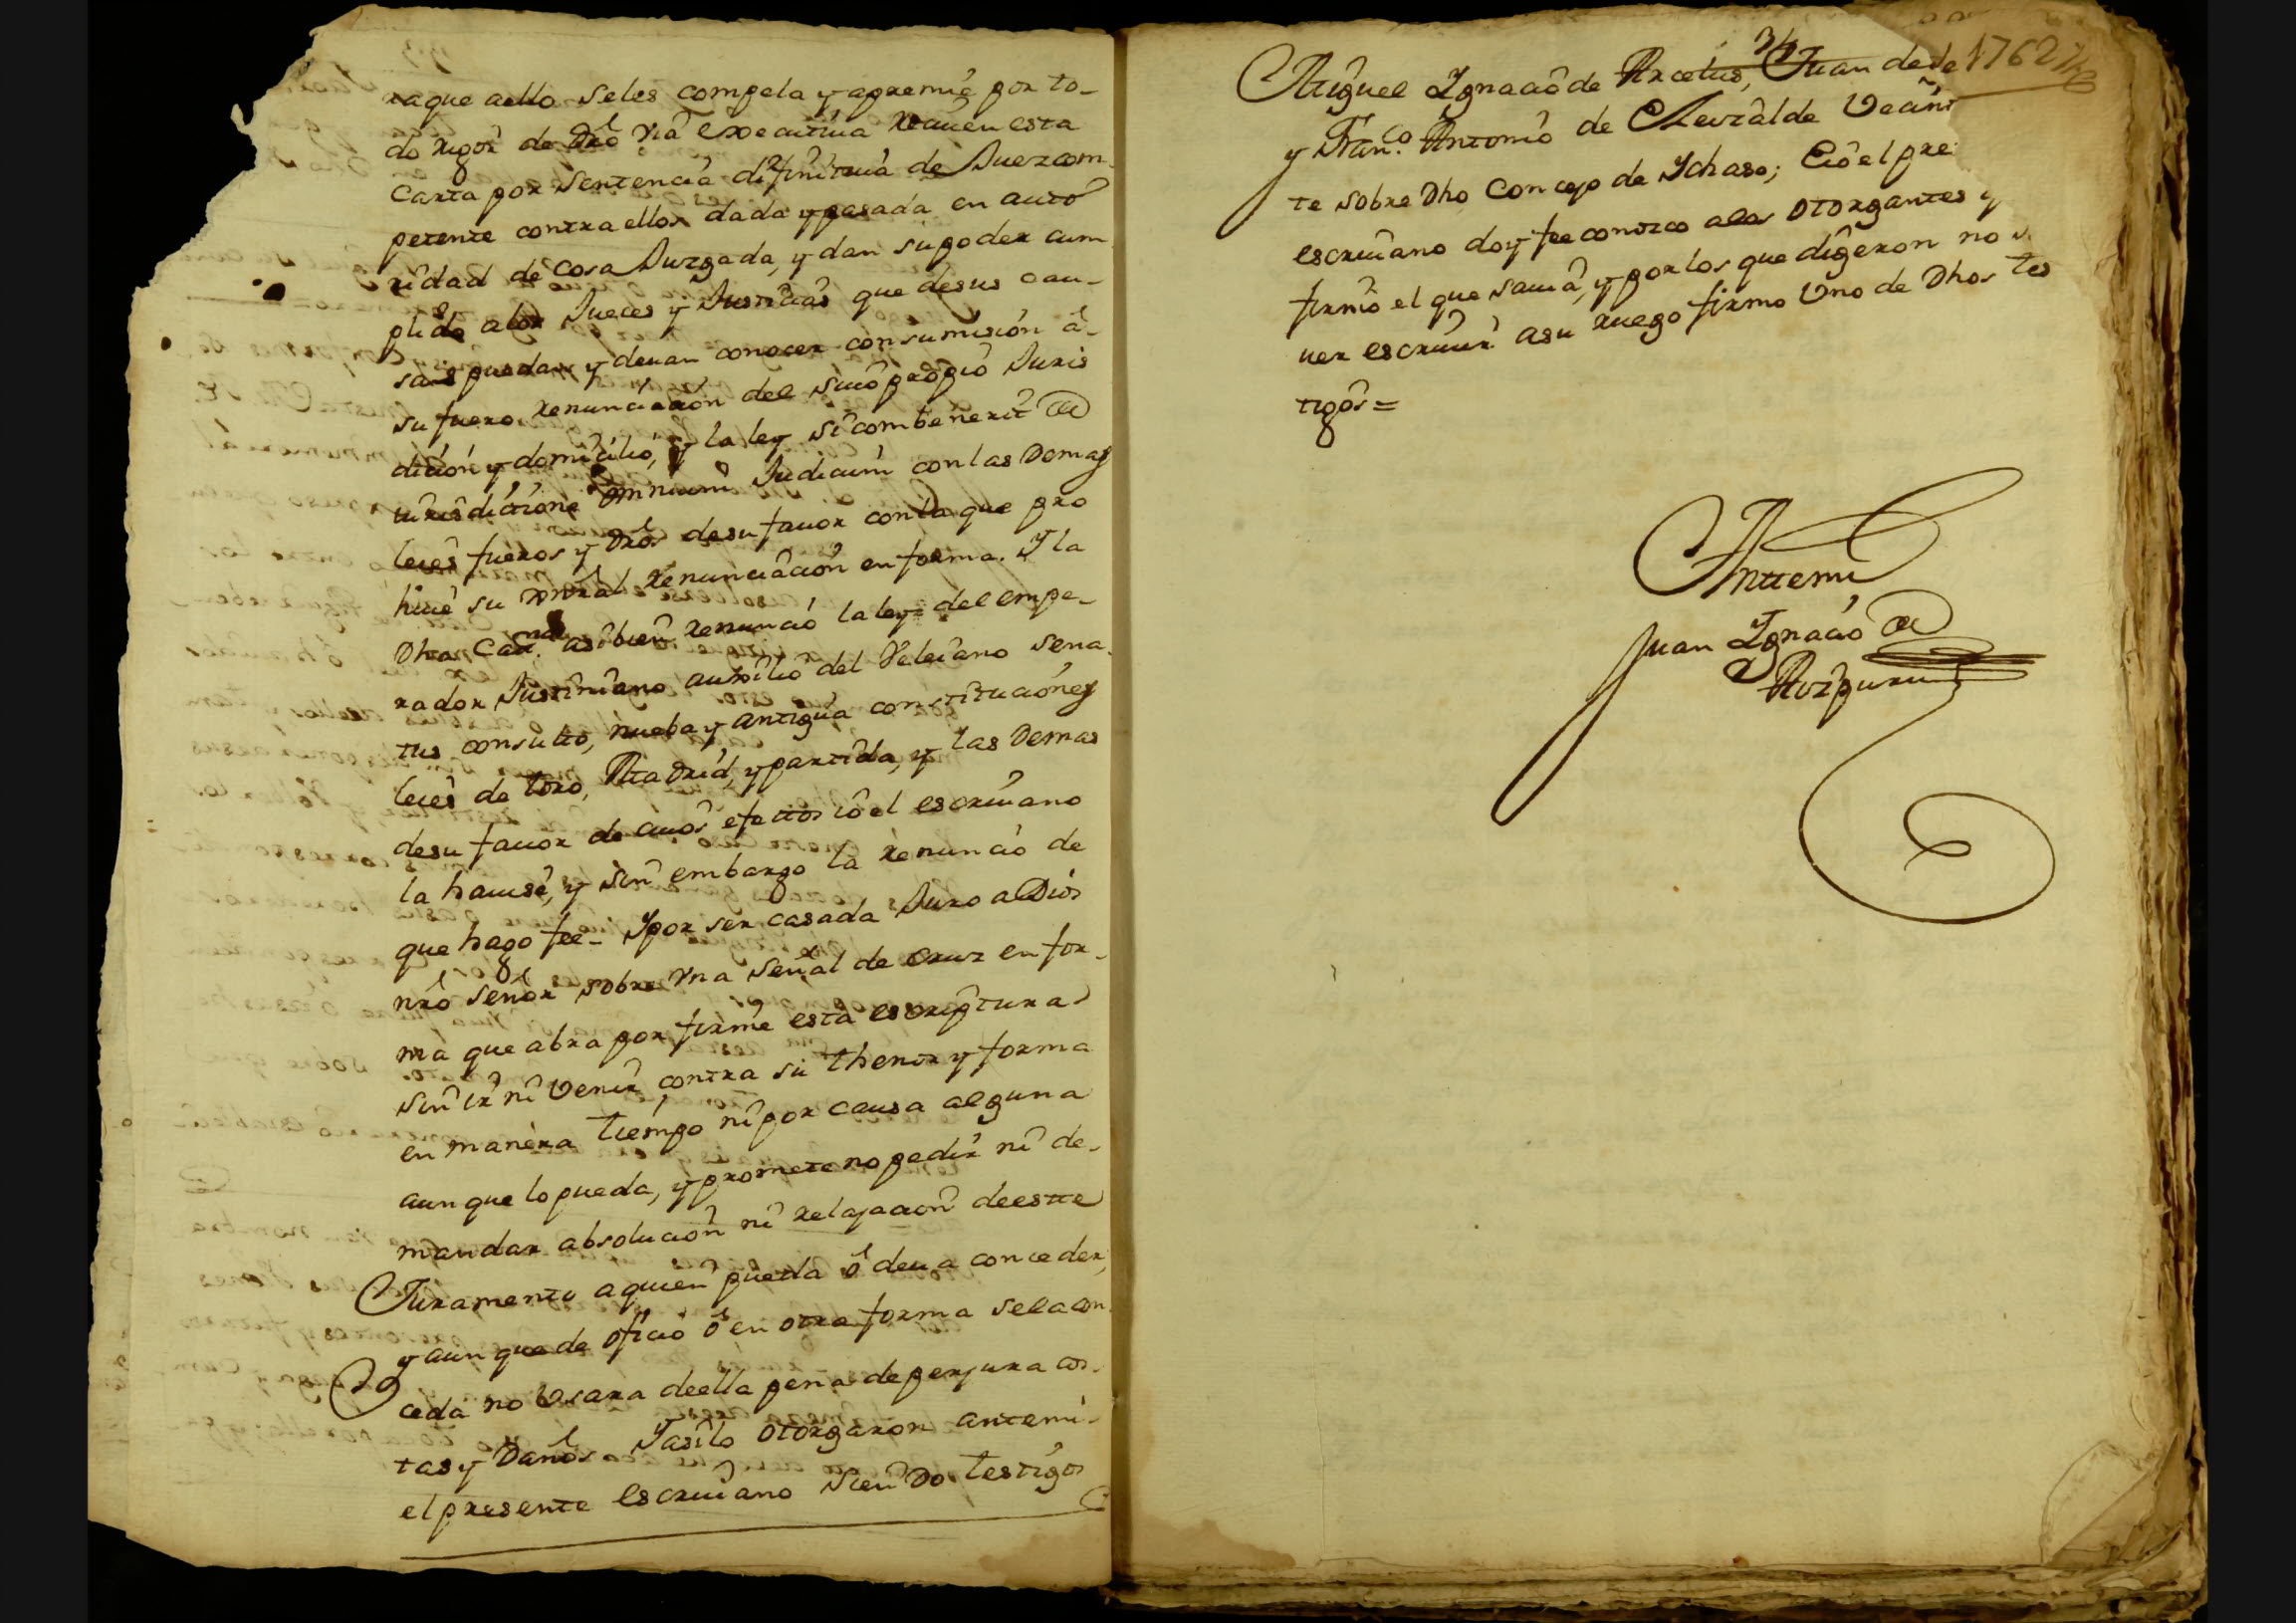 raque aello seles compela y apremie por to-
do rigor de dro via executiua reciuen esta
carta por sentencia difinitiua de Juez com-
petente contra ellos dada y pasada en auto
ridad de cosa Juzgada, y dan su poder cum
plido alos Jueces y Justicias que desus cau-
sas puedan y deuan conocer con sumision á
su fuero renunciacion del suio propio Juris
dición y domicilio, y la ley si combenerit de
iurisdictione omnium Judicum con las Demas
leies fueros y dros desu fauor con la que pro
hiue su general renunciación en forma. Y la
Dha Cathna asibien renunció la ley del empe-
rador Justiniano auxilio del Veleiano sena-
tus consulto, nueba y antigua constituciónes
leies de toro, Madrid, y partida, y las Demas
desu fauor de cuios efettos io el escriuano
la hauisé, y sin embargo la renunció de
que hago fee- Y por ser casada Juro a Dios
nró señor sobre vna señal de cruz en for-
ma que abra por firme esta escriptura
sin ir ni Venir contra su thenor y forma
en manera tiempo ni por causa alguna
aunque lo pueda, y promete no pedir ni de-
mandar absolución ni relajación de estte
Juramento a quien pueda ó deua conceder,
y aunque de oficio ó en otra forma sela con
ceda no Vsara deella pena de perjura cos-
tas y Daños. Y asilo otorgaron antemi-
el presente escriuano siendo testigos
1762
Miguel Ignacio de Arcelus, Juan de
y Franco. Antonio de Aeuzalde Vecinos
te sobre Dho Concejo de Ychaso; Eio el pre
escriuano doy fee conozco alos otorgantes y
firmó el que sauia, y por los que digeron no s
uer escriuir asu ruego firmo Vno de Dhos tes
tigos=
Anttemi
Juan Ignacio de
Aizpuru